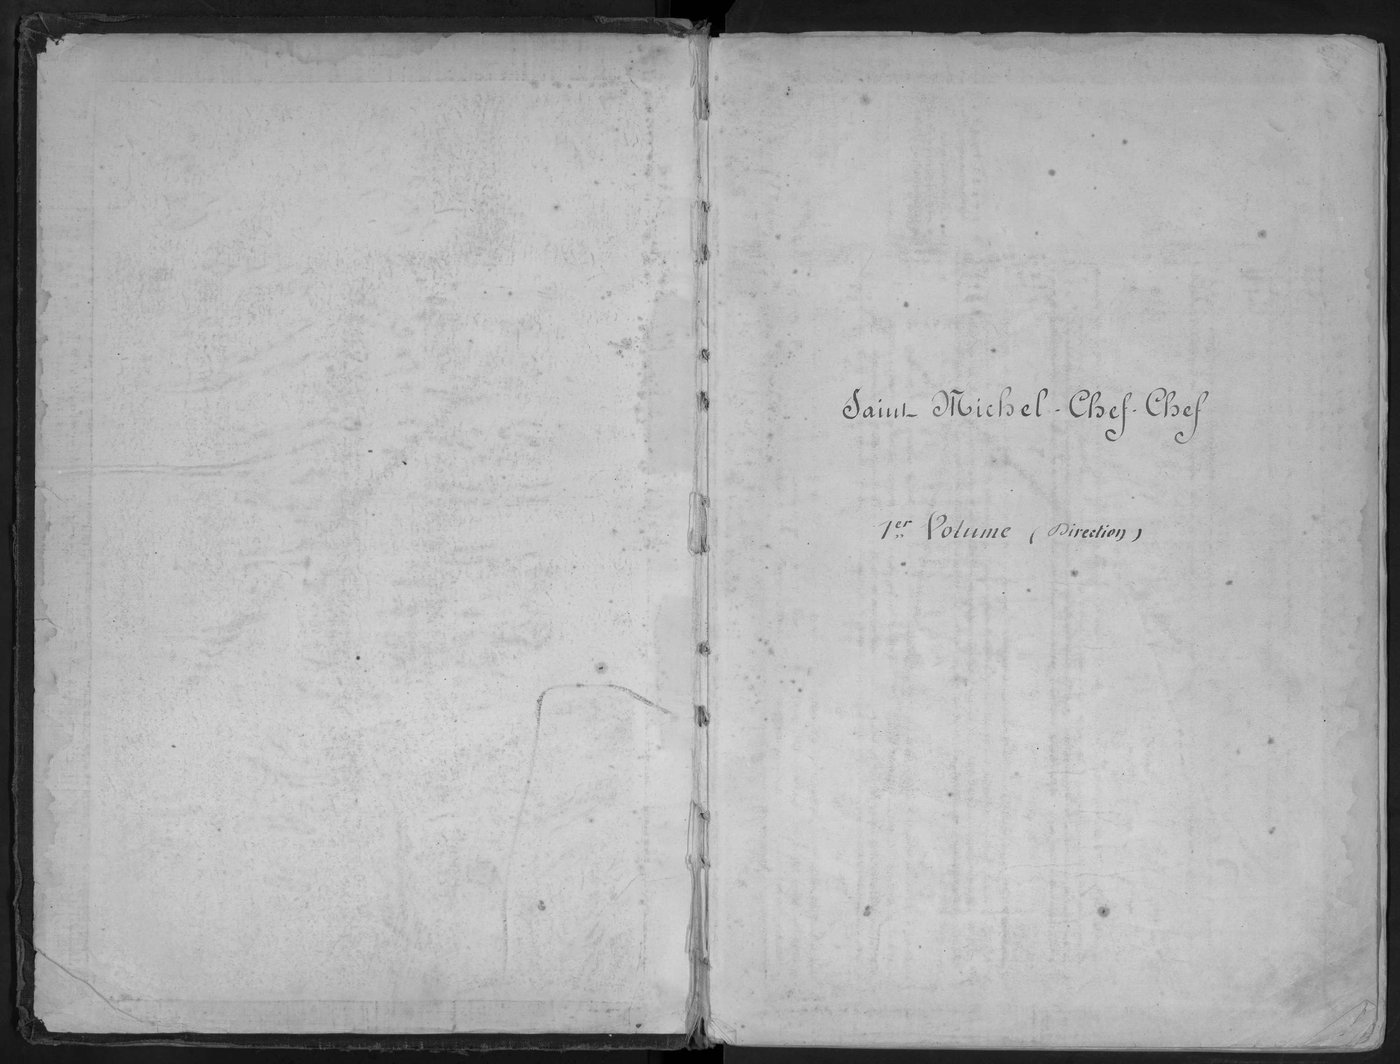 Saint-Michel-Chef-Chef
1er Volume (Direction)